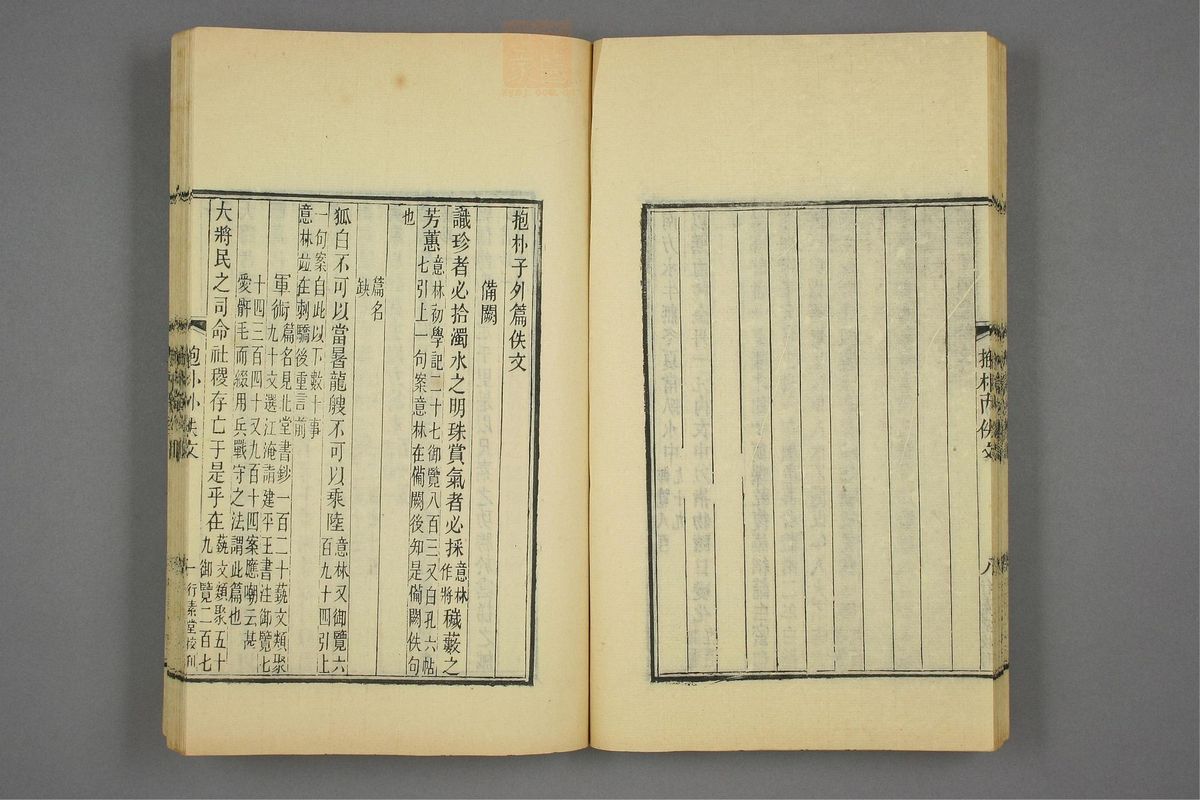 抱朴子外篇佚文
備闕
識珍者必拾濁水之明珠賞氣者必採意林作將穢藪之
芳蕙意林初學記二十七御覽八百三又白孔六帖七引上一句案意林在備闕後知是備闕佚句
也
篇名
缺
狐白不可以當暑龍艘不可以乘陸意林又御覽六百九十四引上
一句案自此以下數十事
意林並在刺驕後重言前
軍術篇名見北堂書鈔一百二十藝文類聚九十文選江淹詣建平王書注御覽七
十四三百四十又九百十四案應嘲云甚
愛骭毛而綴用兵戰守之法謂此篇也
大將民之司命社稷存亡于是乎在藝文類聚五十九御覽二百七
抱朴外佚文
一
行素堂校刊
抱朴內佚文
八